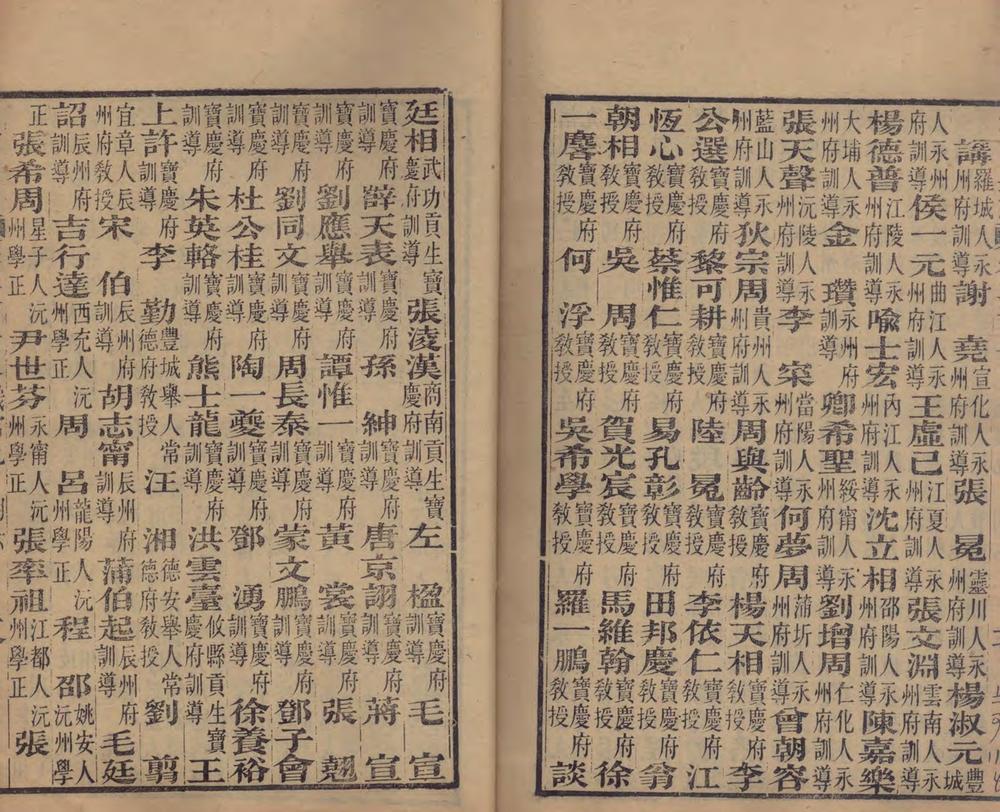 講羅城人永州府訓導謝堯宣化人永州府訓導張冕靈川人永州府訓導楊淑元豐城
人永州府訓導侯一元曲江人永州府訓導王虛己江夏人永州府訓導張文淵雲南人永州府訓導
楊德普江陵人永州府訓導喻士宏內江人永州府訓導沈立相邵陽人永州府訓導陳嘉樂
大埔人永州府訓導金瓚永州府訓導卿希聖綏甯人永州府訓導劉增周仁化人永州府訓導
張天聲沅陵人永州府訓導李宷當陽人永州府訓導何夢周蒲圻人永州府訓導曾朝容
藍山人永州府訓導狄宗周貴州人永州府訓導周與齡寶慶府教授楊天相寶慶府教授李
公選寶慶府教授黎可耕寶慶府教授陸冕寶慶府教授李依仁寶慶府教授江
恆心寶慶府教授蔡惟仁寶慶府教授易孔彰寶慶府教授田邦慶寶慶府教授翁
朝相寶慶府教授吳周寶慶府教授賀光宸寶慶府教授馬維翰寶慶府教授徐
一麐寶慶府教授何浮寶慶府教授吳希學寶慶府教授羅一鵬寶慶府教授談
廷相武功貢生寶慶府訓導張淩漢商南貢生寶慶府訓導左楹寶慶府訓導毛宣
寶慶府訓導薛天表寶慶府訓導孫紳寶慶府訓導唐京詡寶慶府訓導蔣宣
寶慶府訓導劉應舉寶慶府訓導譚惟一寶慶府訓導黃裳寶慶府訓導張翹
寶慶府訓導劉同文寶慶府訓導周長泰寶慶府訓導蒙文鵬寶慶府訓導鄧子會
寶慶府訓導杜公桂寶慶府訓導陶一夔寶慶府訓導鄧湧寶慶府訓導徐養裕
寶慶府訓導朱英輅寶慶府訓導熊士龍寶慶府訓導洪雲臺攸縣貢生寶慶府訓導王
上許寶慶府訓導李勤豐城舉人常德府教授汪湘德安舉人常德府教授劉剪
宜章人辰州府教授宋伯辰州府訓導胡志甯辰州府訓導蒲伯起辰州府訓導毛廷
詔辰州府訓導吉行達西充人沅州學正周呂龍陽人沅州學正程邵姚安人沅州學
正張希周星子人沅州學正尹世芬永甯人沅州學正張率祖江都人沅州學正張